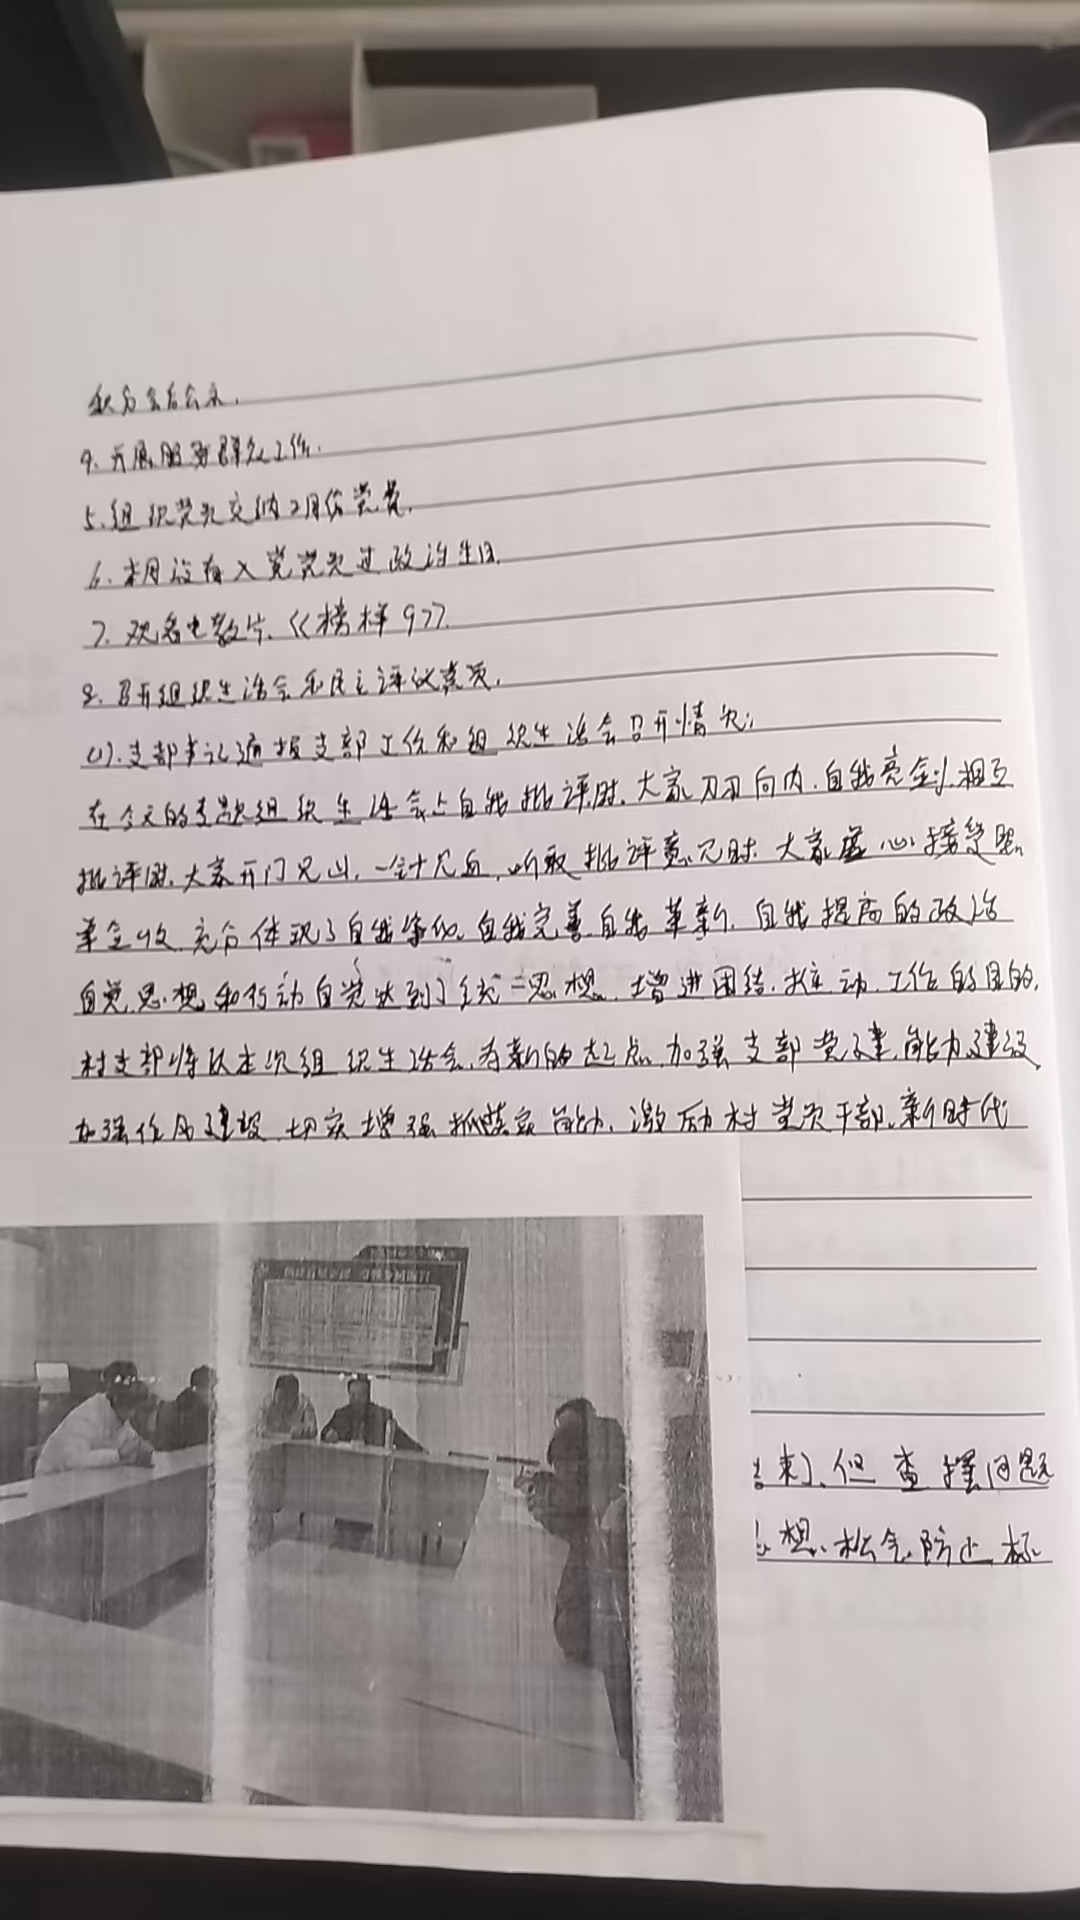 积分会后公示.
4. 开展服务群众工作.
5. 组织党员交纳2月份党费.
6. 本月没有入党党员过政治生日.
7. 观看电教片《榜样9》.
8. 召开组织生活会和民主评议党员.
(1). 支部书记通报支部工作和组织生活会召开情况:
在今天的专题组织生活会上自我批评时,大家刀刃向内,自我亮剑,相互
批评时,大家开门见山,一针见血,听取批评意见时,大家虚心接受照
单全收,充分体现了自我净化,自我完善自我革新,自我提高的政治
自觉,思想和行动自觉达到了统一思想,增进团结,推动工作的目的,
村支部将以本次组织生活会,为新的起点,加强支部党建,能力建设
加强作风建设,切实增强抓落实能力,激励村党员干部,新时代
束,但查摆问题
想,松气,防止